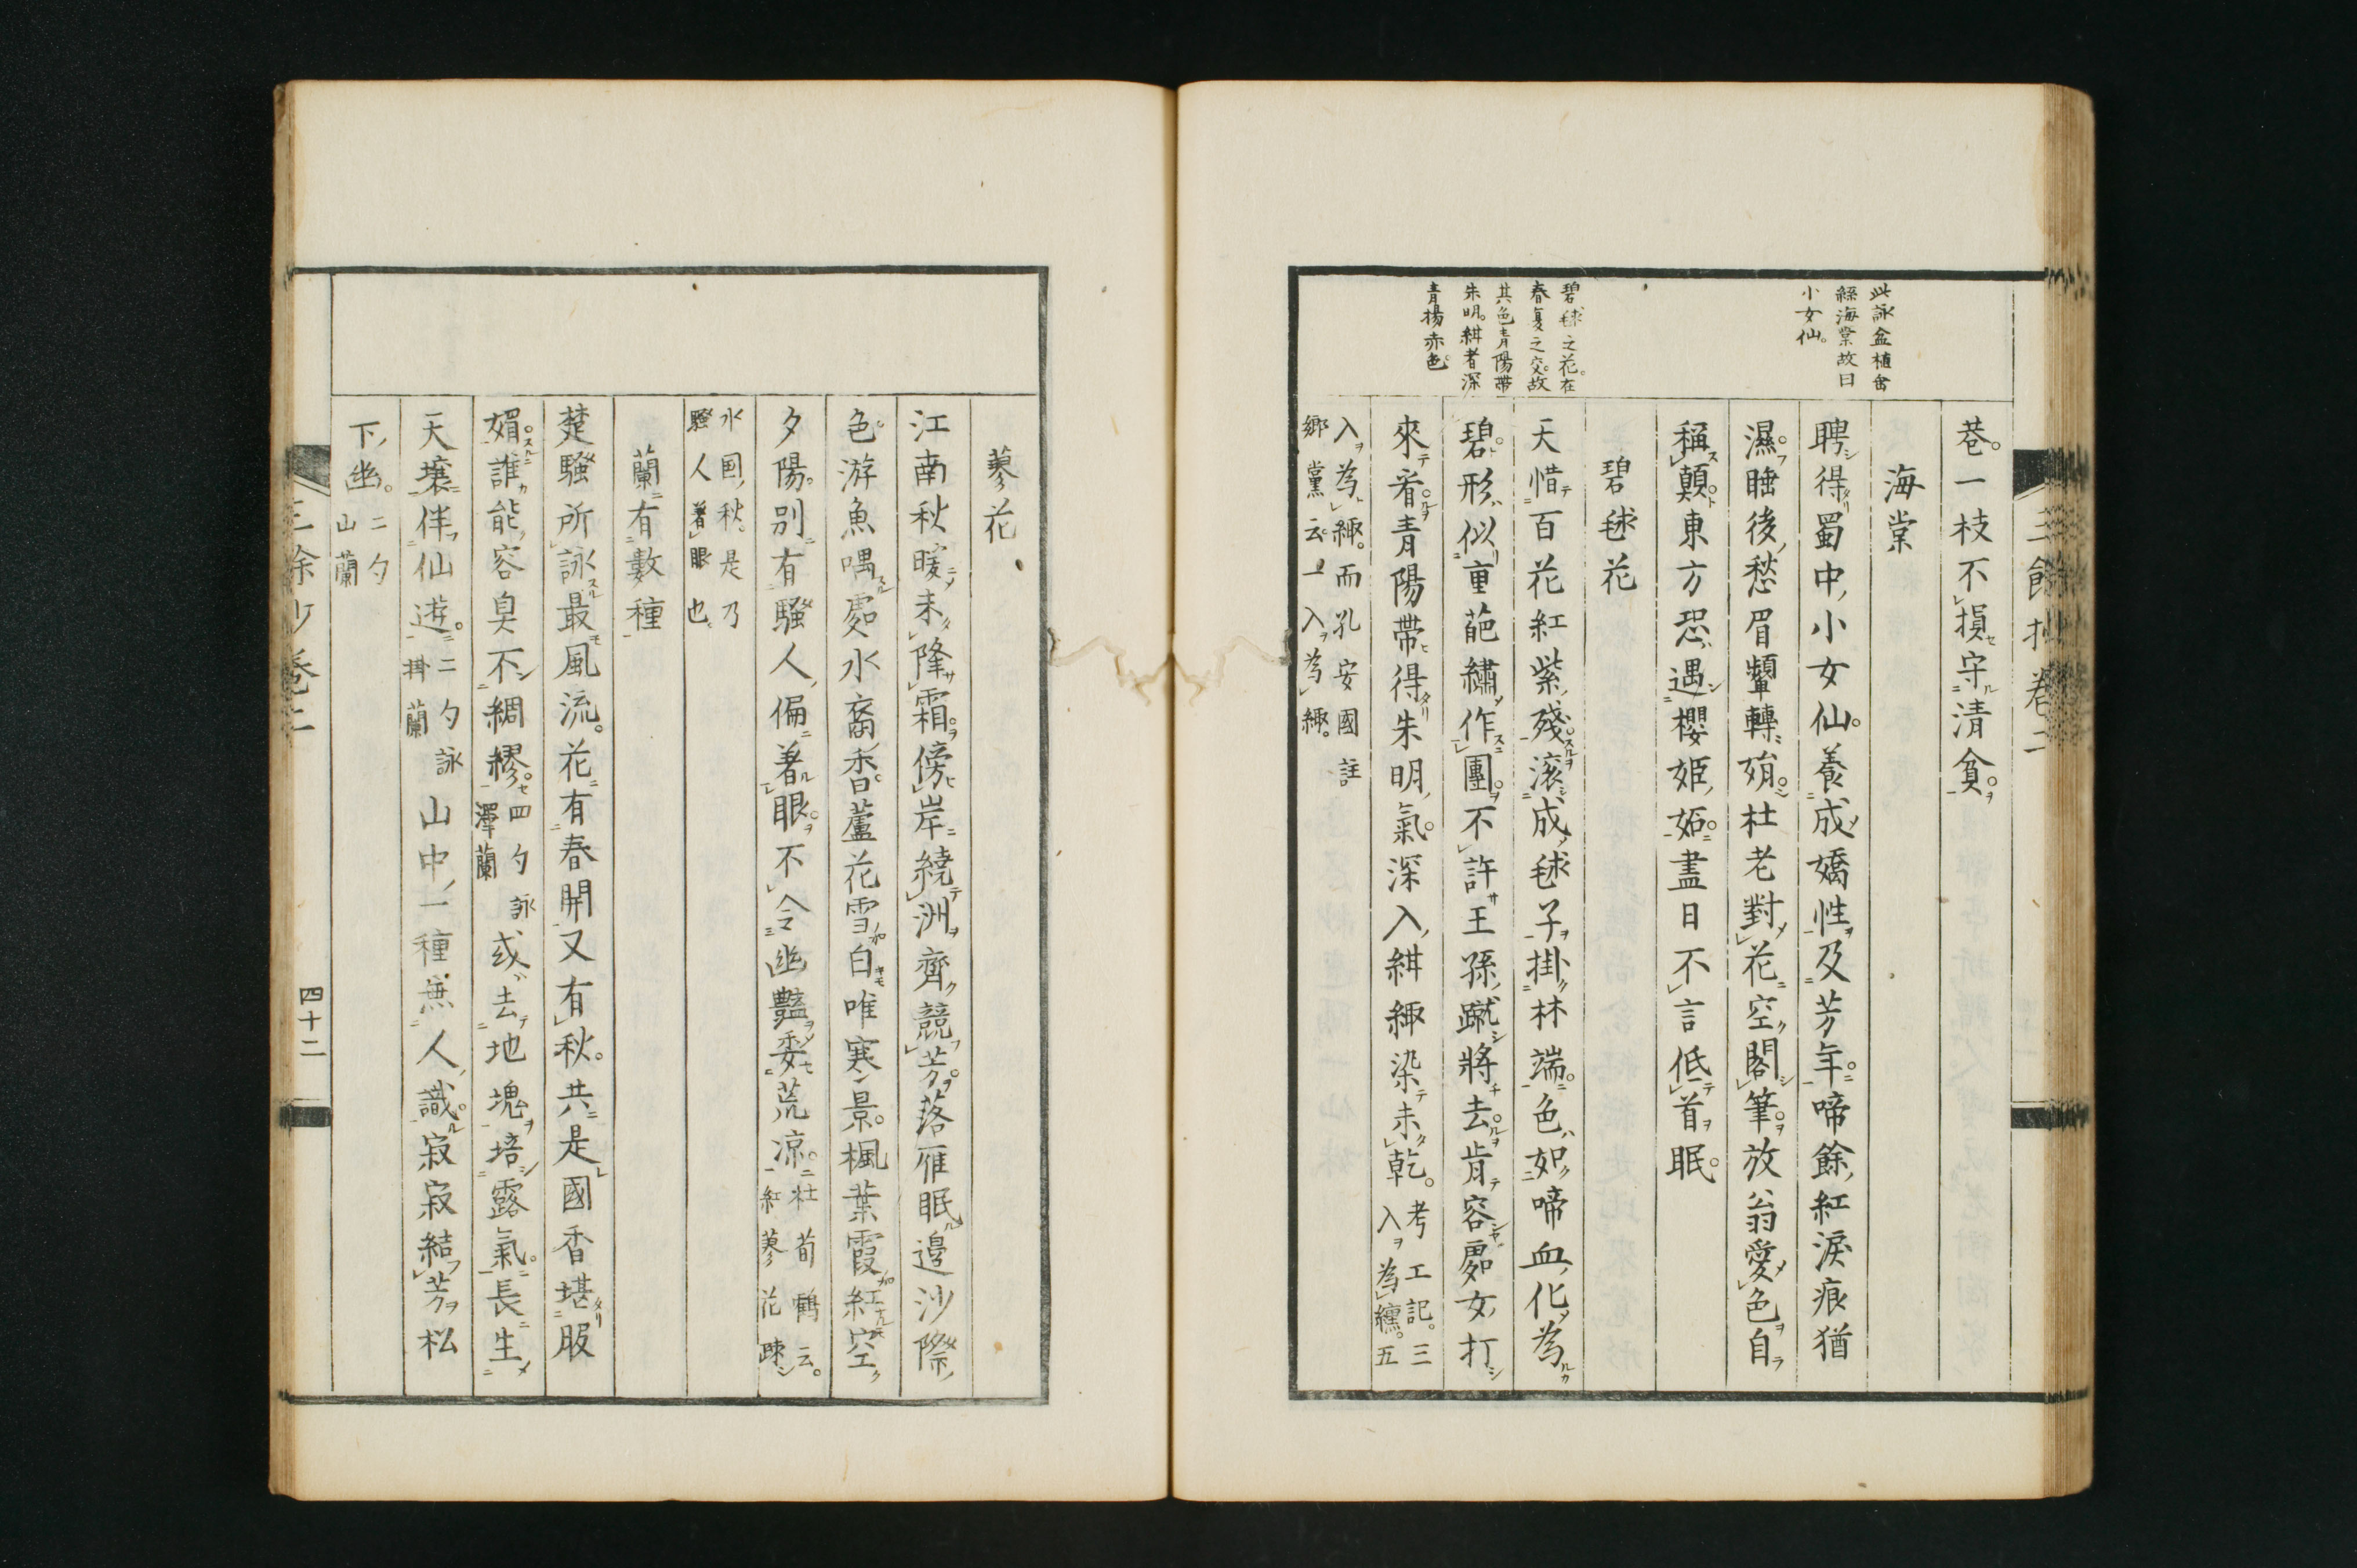 三餘抄卷二
巷一枝不損守清貧
海棠
聘得蜀中小女仙養成嬌性及芳年啼餘紅淚痕猶
濕睡後愁眉顰轉妍杜老對花空閣筆放翁愛色自
稱顛東方恐遇櫻姬妬盡日不言低首眠
碧毬花
天惜百花紅紫殘滾成毬子掛林端色如啼血化為
碧形似重葩繡作團不許王孫蹴將去肯容處女打
來看青陽帶得朱明氣深入紺緅染未乾考工記三
入為纁五
入為緅而孔安國註
鄉黨云一入為緅
此詠盆植
絲海棠故曰
小女仙
碧毬之花在
春夏之交故
其色青陽帶
朱明紺者深
青楊赤色
蓼花
江南秋暖未降霜傍岸繞洲齊競芳落雁眠邊沙際
色游魚喁處水裔香蘆花雪白唯寒景楓葉霞紅空
夕陽別有騷人偏著眼不令幽豔委荒凉杜荀鶴云
紅蓼花疎
水国秋是乃
騷人著眼也
蘭有數種
楚騷所詠最風流花有春開又有秋共是國香堪服
媚誰能容臭不綢繆四勺詠
澤蘭或去地塊培露氣長生
天壤伴仙遊二勺詠
掛蘭山中一種無人識寂寂結芳松
下幽二勺
山蘭
三餘抄卷二
四十二